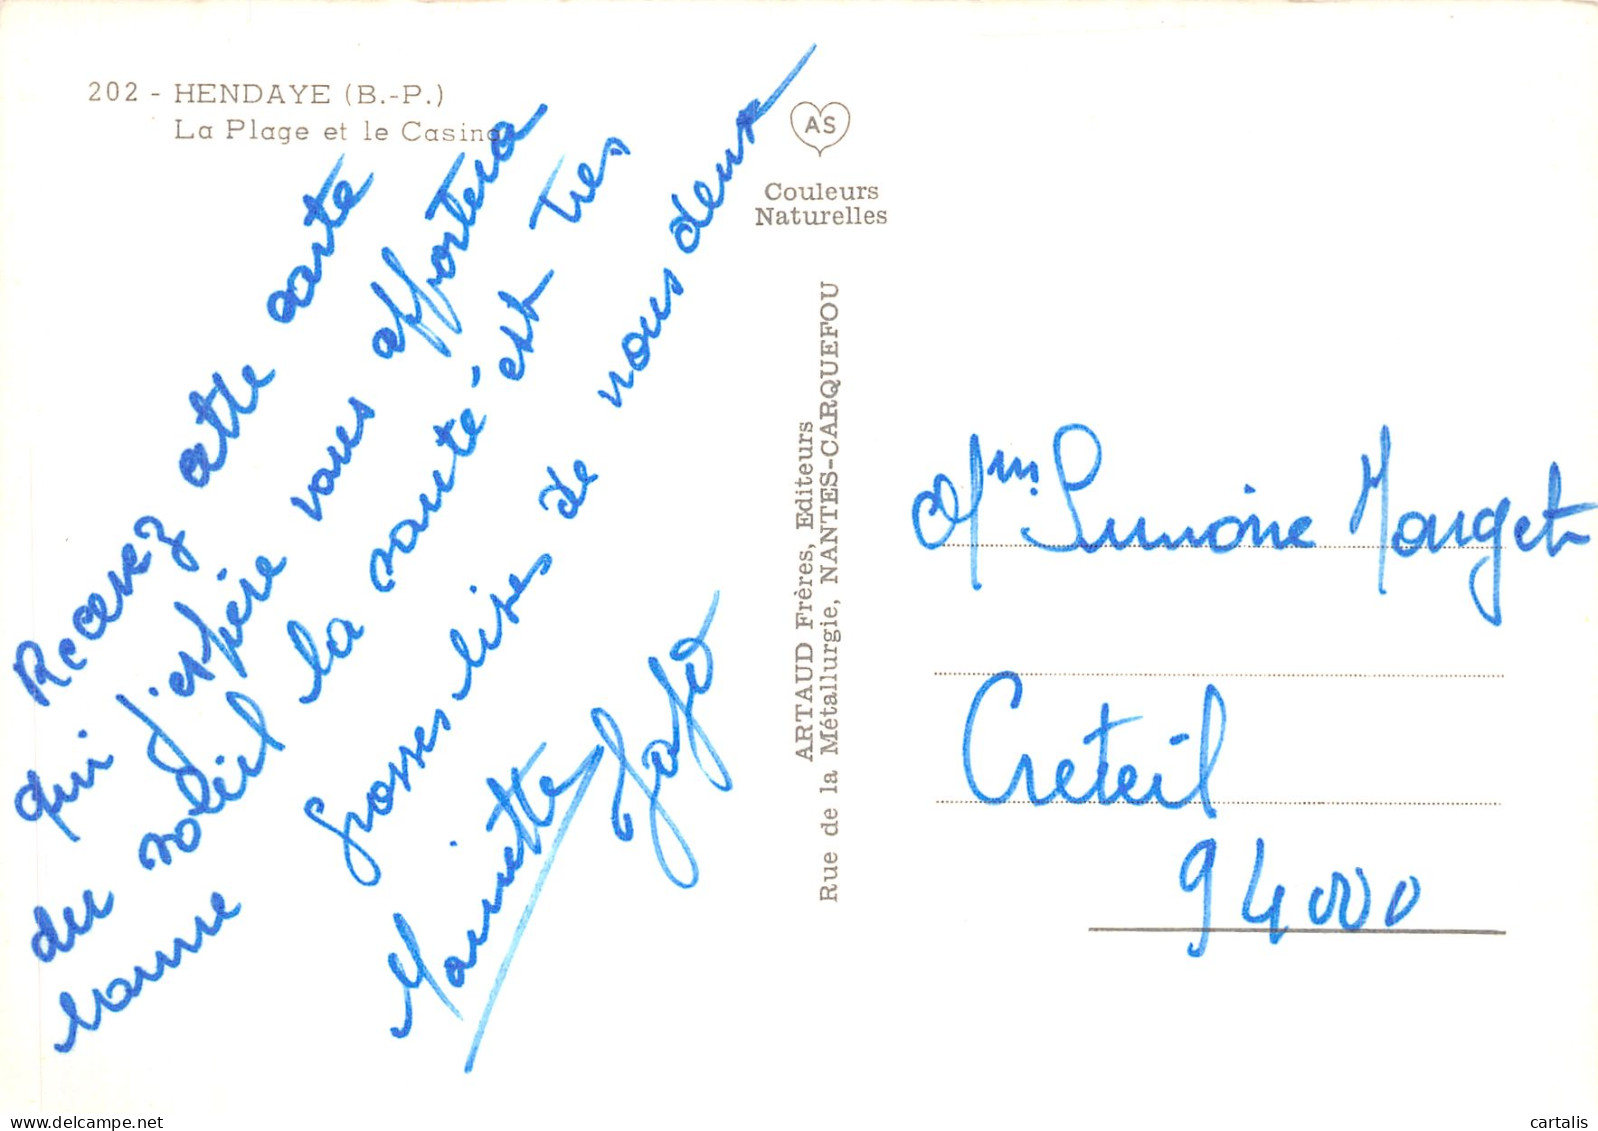 202 - HENDAYE (B.-P.)
La Plage et le Casino
Recevez cette carte
qui j'espère vous apportera
du soleil la santé est très
bonne grosses bises de nous deux
Mariette Jojo
AS
Couleurs
Naturelles
ARTAUD Frères, Editeurs
Rue de la Métallurgie, NANTES-CARQUEFOU
Mme Simone
Creteil
94000
cartalis
delcampe.net